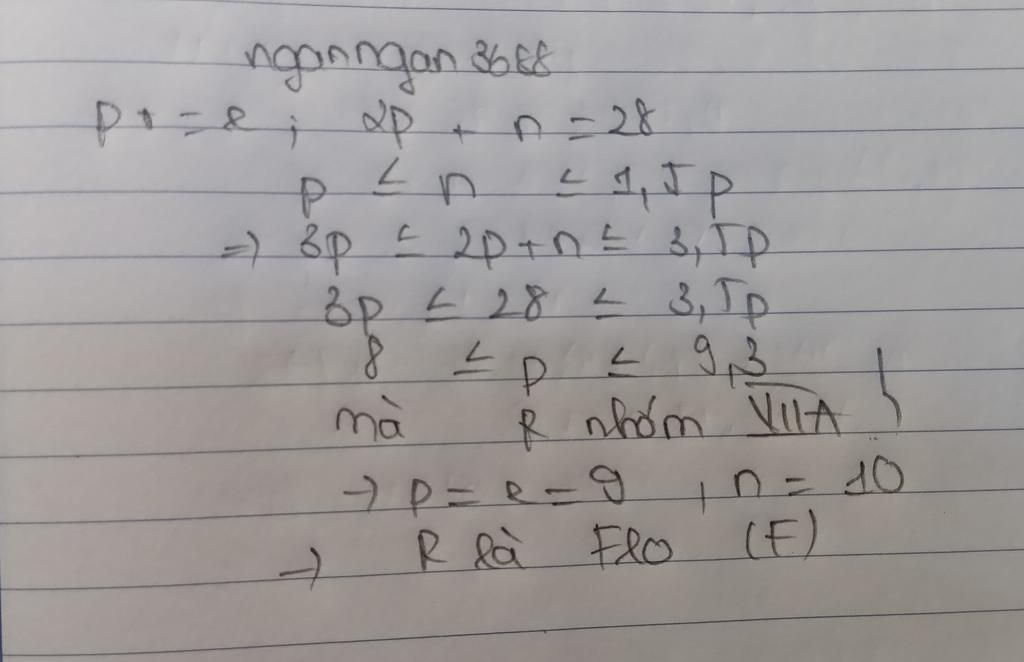 nganngan3688
p+ = e ; 2p + n = 28
p ≤ n ≤ 1,5p
=> 3p ≤ 2p+n ≤ 3,5p
3p ≤ 28 ≤ 3,5p
8 ≤ p ≤ 9,3
mà R nhóm VIIA }
-> p = e = 9 , n = 10
-> R là Flo (F)